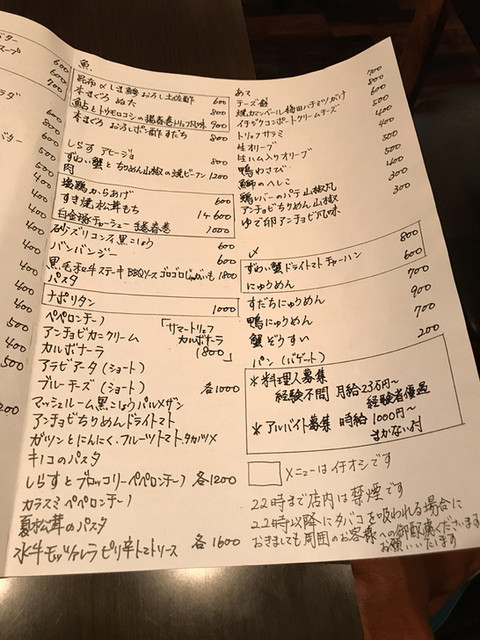 バター 600
スープ
600
600
700
ラダ
バター
400
400
400
400
400
400
500
400
500
200
魚
昆布〆しま鯵 おろし土佐酢 600
本まぐろ ぬた 800
鮎とトウモロコシの揚春巻トリュフ風味 900
本まぐろ おろしポン酢すだち 800
しらす アヒージョ 800
ずわい蟹とちりめん山椒の焼ビーフン 1200
肉
塩鶏からあげ 600
すき焼松茸もち 1ヶ600
白金豚チャーシュー 揚春巻 1000
砂ズリコンフィ黒こしょう 600
バンバンジー 600
黒毛和牛ステーキ BBQソースゴロゴロじゃがいも 1800
パスタ
ナポリタン 1000
ペペロンチーノ
アンチョビカニクリーム
カルボナーラ
「サマートリュフ
カルボナーラ
1800」
アラビアータ(ショート)
ブルーチーズ(ショート) 各1000
マッシュルーム黒こしょうパルメザン
アンチョビちりめんドライトマト
ガツンとにんにく、フルーツトマト、タカノツメ
キノコのパスタ
しらすとブロッコリーペペロンチーノ 各1200
カラスミペペロンチーノ
夏松茸のパスタ
水牛モッツァレラピリ辛トマトソース 各1600
あて
チーズ 700
焼カマンベール梅田ハチミツがけ 800
イチジクコンポートクリームチーズ 600
トリュフサラミ 500
生オリーブ 400
生ハム入りオリーブ 500
鴨わさび 400
鯖のへしこ 500
鶏レバーのパテ山椒風 400
アンチョビちりめん山椒 300
ゆで卵アンチョビ風味 300
〆
ずわい蟹ドライトマトチャーハン 800
にゅうめん 600
すだちにゅうめん 700
鴨にゅうめん 900
蟹ぞうすい 700
パン(バゲット) 200
※料理人募集
経験不問 月給23万円〜
経験者優遇
※アルバイト募集 時給1000円〜
まかない付
メニューはイチオシです
22時まで店内は禁煙です
22時以降にタバコを吸われる場合に
おきましても周囲のお客様への御配慮くださいます
お願いいたします